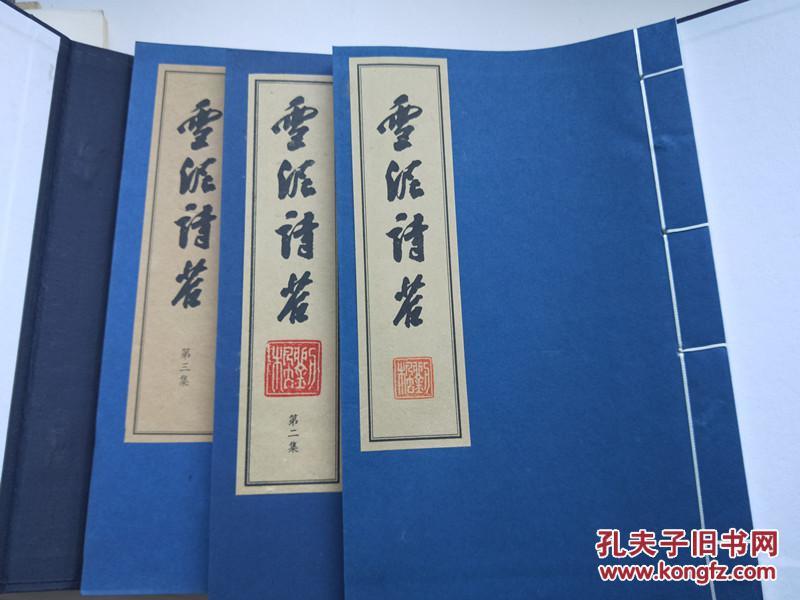 雪泥詩
第三集
雪泥詩
第二集
雪泥詩
孔夫子旧书网
www.kongfz.com